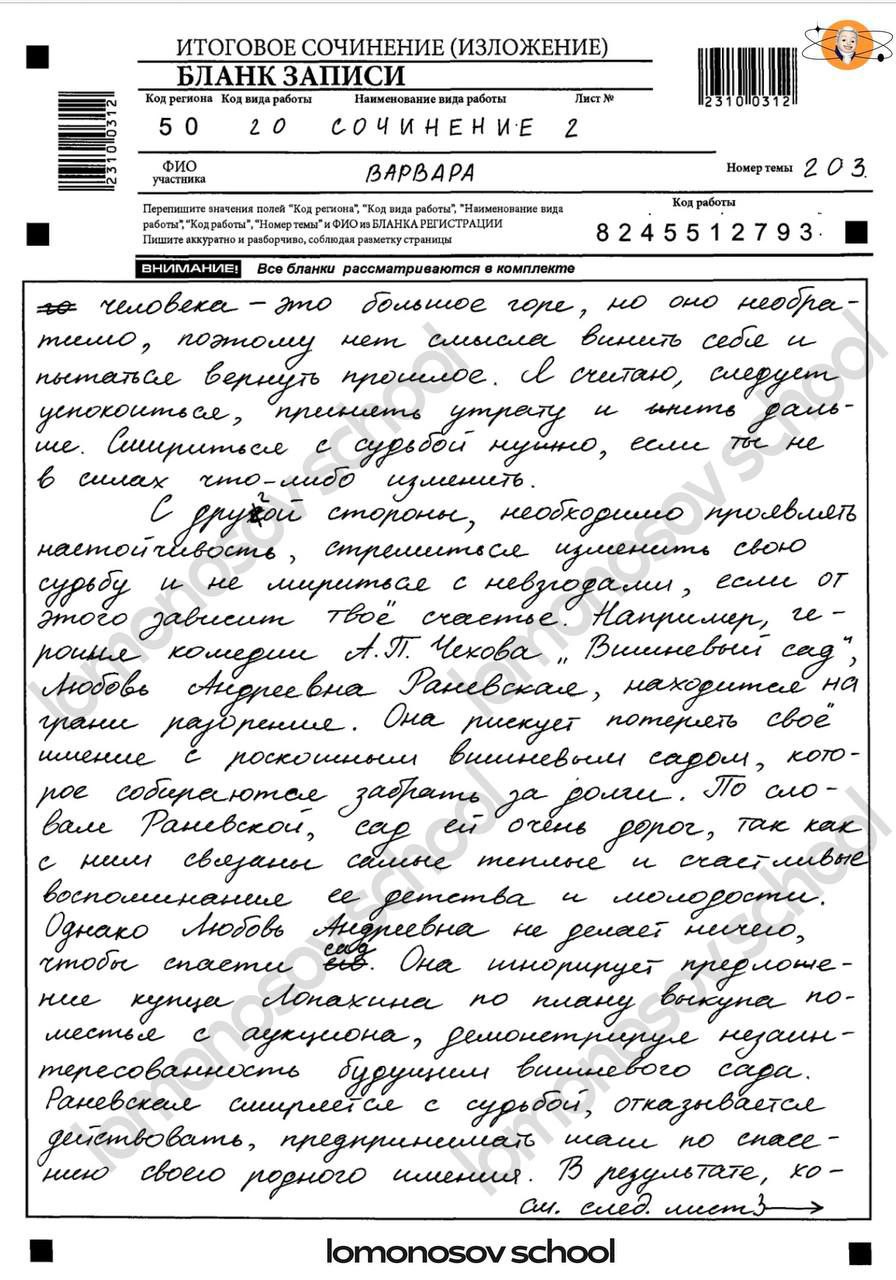 ИТОГОВОЕ СОЧИНЕНИЕ (ИЗЛОЖЕНИЕ)
БЛАНК ЗАПИСИ
2310 0312
2310 0312
Код региона Код вида работы Наименование вида работы Лист №
50 20 СОЧИНЕНИЕ 2
ФИО участника ВАРВАРА Номер темы 203
Перепишите значения полей "Код региона", "Код вида работы", "Наименование вида
работы", "Код работы", "Номер темы" и ФИО из БЛАНКА РЕГИСТРАЦИИ
Пишите аккуратно и разборчиво, соблюдая разметку страницы
Код работы
8245512793
ВНИМАНИЕ! Все бланки рассматриваются в комплекте
человека – это большое горе, но оно необра-
тимо, поэтому нет смысла винить себя и
пытаться вернуть прошлое. Я считаю, следует
успокоиться, принять утрату и жить даль-
ше. Смириться с судьбой нужно, если ты не
в силах что-либо изменить.
С другой стороны, необходимо проявлять
настойчивость, стремиться изменить свою
судьбу и не мириться с невзгодами, если от
этого зависит твоё счастье. Например, ге-
роиня комедии А.П. Чехова „Вишневый сад",
Любовь Андреевна Раневская, находится на
грани разорения. Она рискует потерять своё
имение с роскошным вишневым садом, кото-
рое собираются забрать за долги. По сло-
вам Раневской, сад ей очень дорог, так как
с ним связаны самые теплые и счастливые
воспоминания ее детства и молодости.
Однако Любовь Андреевна не делает ничего,
чтобы спасти сад. Она игнорирует предложе-
ние купца Лопахина по плану выкупа по-
местья с аукциона, демонстрируя незаин-
тересованность будущим вишневого сада.
Раневская смиряется с судьбой, отказывается
действовать, предпринимать шаги по спасе-
нию своего родного имения. В результате, ко-
см. след. лист 3
lomonosov school
lomonosov school
lomonosov school
lomonosov school
lomonosov school